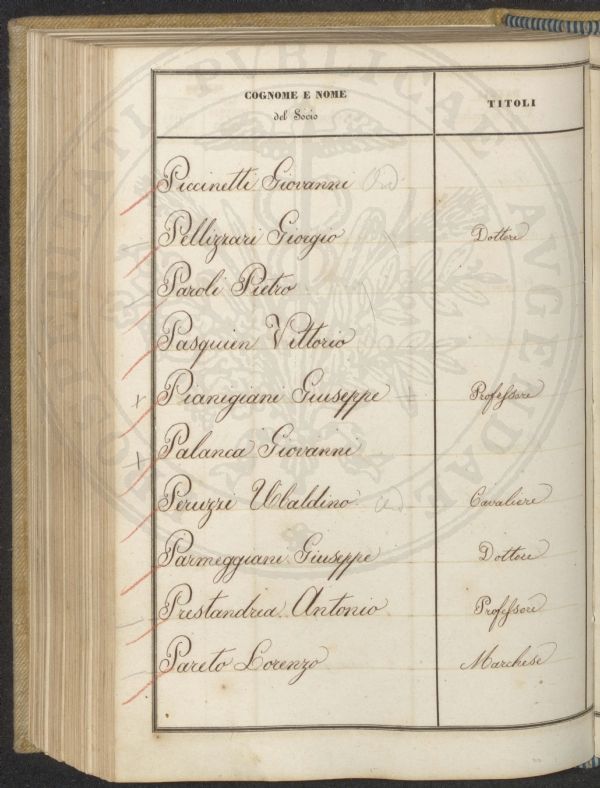 COGNOME E NOME
del Socio
TITOLI
Piccinetti Giovanni Ord
Pellizzari Giorgio Dottore
Paroli Pietro
Pasquien Vittorio
Pianigiani Giuseppe Professore
Palanca Giovanni
Peruzzi Ubaldino Cavaliere
Parmeggiani Giuseppe Dottore
Prestandrea Antonio Professore
Pareto Lorenzo Marchese
PROSPERITATI PUBLICAE AVGENDAE